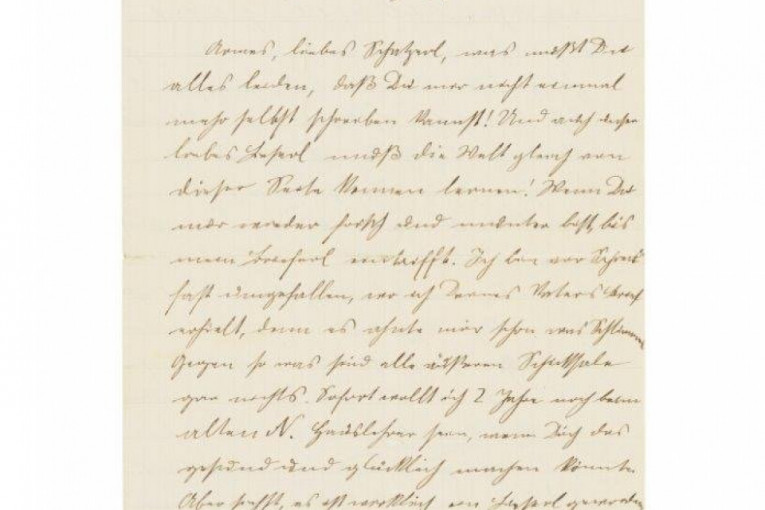 Armes, liebes Schatzerl, was mußt Du
alles leiden, daß Du mir nicht einmal
mehr selbst schreiben kannst! Und auch unser
liebes Lieserl muß die Welt gleich von
dieser Seite kennen lernen! Wenn Du
nur wieder frisch und munter bist, bis
mein Brieferl eintrifft. Ich bin vor Schreck
fast umgefallen, wo ich Deines Vaters Brief
erhielt, denn es ahnte mir schon was Schlimmes
Gegen so was sind alle äußeren Schicksale
gar nichts. Sofort wollt ich 2 Jahre noch beim
alten N. Hauslehrer sein, wenn Dich das
gesund und glücklich machen könnte.
Aber siehst, es ist wirklich ein Lieserl geworden